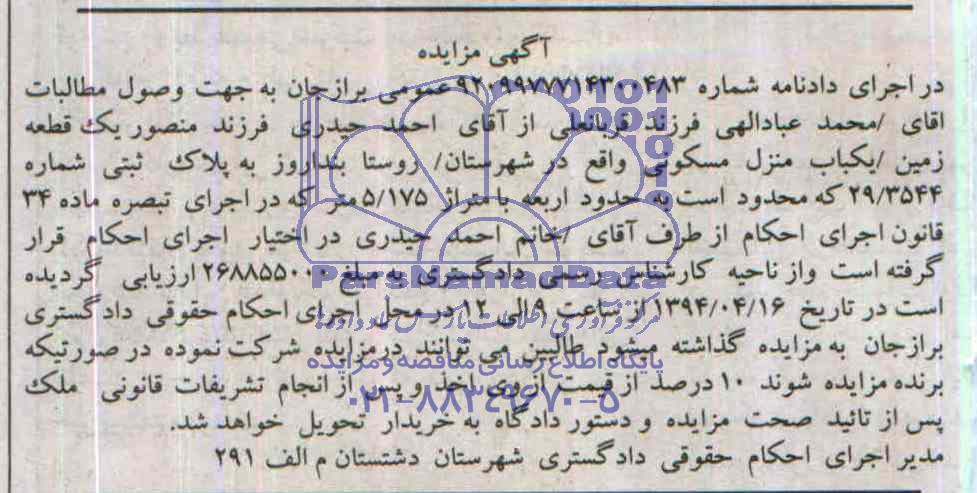 آگهی مزایده
در اجرای دادنامه شماره ۹۲۰۹۹۷۷۷۱۴۳۰۰۴۸۳ عمومی برازجان به جهت وصول مطالبات
اقای /محمد عبادالهی فرزند قربانعلی از آقای احمد حیدری فرزند منصور یک قطعه
زمین /یکباب منزل مسکونی واقع در شهرستان/ روستا بنداروز به پلاک ثبتی شماره
۲۹/۳۵۴۴ که محدود است به حدود اربعه با متراژ ۵/۱۷۵ متر که در اجرای تبصره ماده ۳۴
قانون اجرای احکام از طرف آقای /خانم احمد حیدری در اختیار اجرای احکام قرار
گرفته است واز ناحیه کارشناس رسمی دادگستری به مبلغ ۲۶۸۸۵۵۰۰۰ ارزیابی گردیده
است در تاریخ ۱۳۹۴/۰۴/۱۶ از ساعت ۹ الی ۱۲ در محل اجرای احکام حقوقی دادگستری
برازجان به مزایده گذاشته میشود طالبین می توانند در مزایده شرکت نموده در صورتیکه
برنده مزایده شوند ۱۰ درصد از قیمت از وی اخذ و پس از انجام تشریفات قانونی ملک
پس از تائید صحت مزایده و دستور دادگاه به خریدار تحویل خواهد شد.
مدیر اجرای احکام حقوقی دادگستری شهرستان دشتستان م الف ۲۹۱
ParsNamadData
پایگاه اطلاع رسانی مناقصه و مزایده
۰۲۱-۸۸۳۴۹۶۷۰-۵